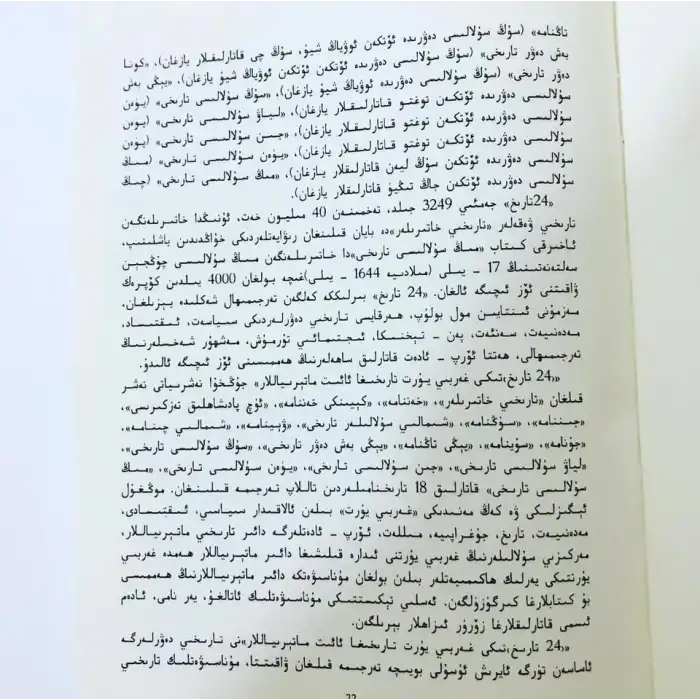 تاڭنامە» (سۇڭ سۇلالىسى دەۋرىدە ئۆتكەن ئوۋياڭ شيۇ، سۇڭ چى قاتارلىقلار يازغان)، «كونا
بەش دەۋر تارىخى» (سۇڭ سۇلالىسى دەۋرىدە ئۆتكەن ئوۋياڭ شيۇ يازغان)، «يېڭى بەش
دەۋر تارىخى» (سۇڭ سۇلالىسى دەۋرىدە ئۆتكەن ئوۋياڭ شيۇ يازغان)، «سۇڭ سۇلالىسى تارىخى» (يۇەن
سۇلالىسى دەۋرىدە ئۆتكەن توغتو قاتارلىقلار يازغان)، «لياۋ سۇلالىسى تارىخى» (يۇەن
سۇلالىسى دەۋرىدە ئۆتكەن توغتو قاتارلىقلار يازغان)، «جىن سۇلالىسى تارىخى» (يۇەن
سۇلالىسى دەۋرىدە ئۆتكەن توغتو قاتارلىقلار يازغان)، «يۇەن سۇلالىسى تارىخى» (مىڭ
سۇلالىسى دەۋرىدە ئۆتكەن سۇڭ ليەن قاتارلىقلار يازغان)، «مىڭ سۇلالىسى تارىخى» (چىڭ
سۇلالىسى دەۋرىدە ئۆتكەن جاڭ تىڭيۇ قاتارلىقلار يازغان).
«24تارىخ» جەمئىي 3249 جىلد، تەخمىنەن 40 مىليون خەت، ئۇنىڭدا خاتىرىلەنگەن
تارىخىي ۋەقەلەر «تارىخىي خاتىرىلەر»دە بايان قىلىنغان رىۋايەتلەردىكى خۇاڭدىدىن باشلىنىپ،
ئاخىرقى كىتاب «مىڭ سۇلالىسى تارىخى»دا خاتىرىلەنگەن مىڭ سۇلالىسى چۇڭجېن
سەلتەنەتىنىڭ 17 - يىلى (مىلادىيە 1644 - يىلى)غىچە بولغان 4000 يىلدىن كۆپرەك
ۋاقىتنى ئۆز ئىچىگە ئالغان. «24 تارىخ» بىرلىككە كەلگەن تەرجىمىھال شەكلىدە يېزىلغان،
مەزمۇنى ئىنتايىن مول بولۇپ، ھەرقايسى تارىخىي دەۋرلەردىكى سىياسەت، ئىقتىساد،
مەدەنىيەت، سەنئەت، پەن - تېخنىكا، ئىجتىمائىي تۇرمۇش، مەشھۇر شەخسلەرنىڭ
تەرجىمىھالى، ھەتتا ئۆرپ - ئادەت قاتارلىق ساھەلەرنىڭ ھەممىسىنى ئۆز ئىچىگە ئالىدۇ.
«‹24 تارىخ›تىكى غەربىي يۇرت تارىخىغا ئائىت ماتېرىياللار» جۇڭخۇا نەشرىياتى نەشر
قىلغان «تارىخىي خاتىرىلەر»، «خەننامە»، «كېيىنكى خەننامە»، «ئۈچ پادىشاھلىق تەزكىرىسى»،
«جىننامە»، «سۇڭنامە»، «شىمالىي سۇلالىلەر تارىخى»، «ۋېينامە»، «شىمالىي چىنامە»،
«جۇنامە»، «سۇينامە»، «يېڭى تاڭنامە»، «يېڭى بەش دەۋر تارىخى»، «سۇڭ سۇلالىسى تارىخى»،
«لياۋ سۇلالىسى تارىخى»، «جىن سۇلالىسى تارىخى»، «يۇەن سۇلالىسى تارىخى»، «مىڭ
سۇلالىسى تارىخى» قاتارلىق 18 تارىخنامىلەردىن تاللاپ تەرجىمە قىلىنغان. موڭغۇل
ئېگىزلىكى ۋە كەڭ مەنىدىكى «غەربىي يۇرت» بىلەن ئالاقىدار سىياسىي، ئىقتىسادى،
مەدەنىيەت، تارىخ، جۇغراپىيە، مىللەت، ئۆرپ - ئادەتلەرگە دائىر تارىخىي ماتېرىياللار،
مەركىزىي سۇلالىلەرنىڭ غەربىي يۇرتنى ئىدارە قىلىشىغا دائىر ماتېرىياللار ھەمدە غەربىي
يۇرتتىكى يەرلىك ھاكىمىيەتلەر بىلەن بولغان مۇناسىۋەتكە دائىر ماتېرىياللارنىڭ ھەممىسى
بۇ كىتابلارغا كىرگۈزۈلگەن. ئەسلىي تېكىستتىكى مۇناسىۋەتلىك ئاتالغۇ، يەر نامى، ئادەم
ئىسمى قاتارلىقلارغا زۆرۈر ئىزاھلار بېرىلگەن.
«‹24 تارىخ›تىكى غەربىي يۇرت تارىخىغا ئائىت ماتېرىياللار»نى تارىخىي دەۋرلەرگە
ئاساسەن تۈرگە ئايرىش ئۇسۇلى بويىچە تەرجىمە قىلغان ۋاقىتتا، مۇناسىۋەتلىك تارىخىي